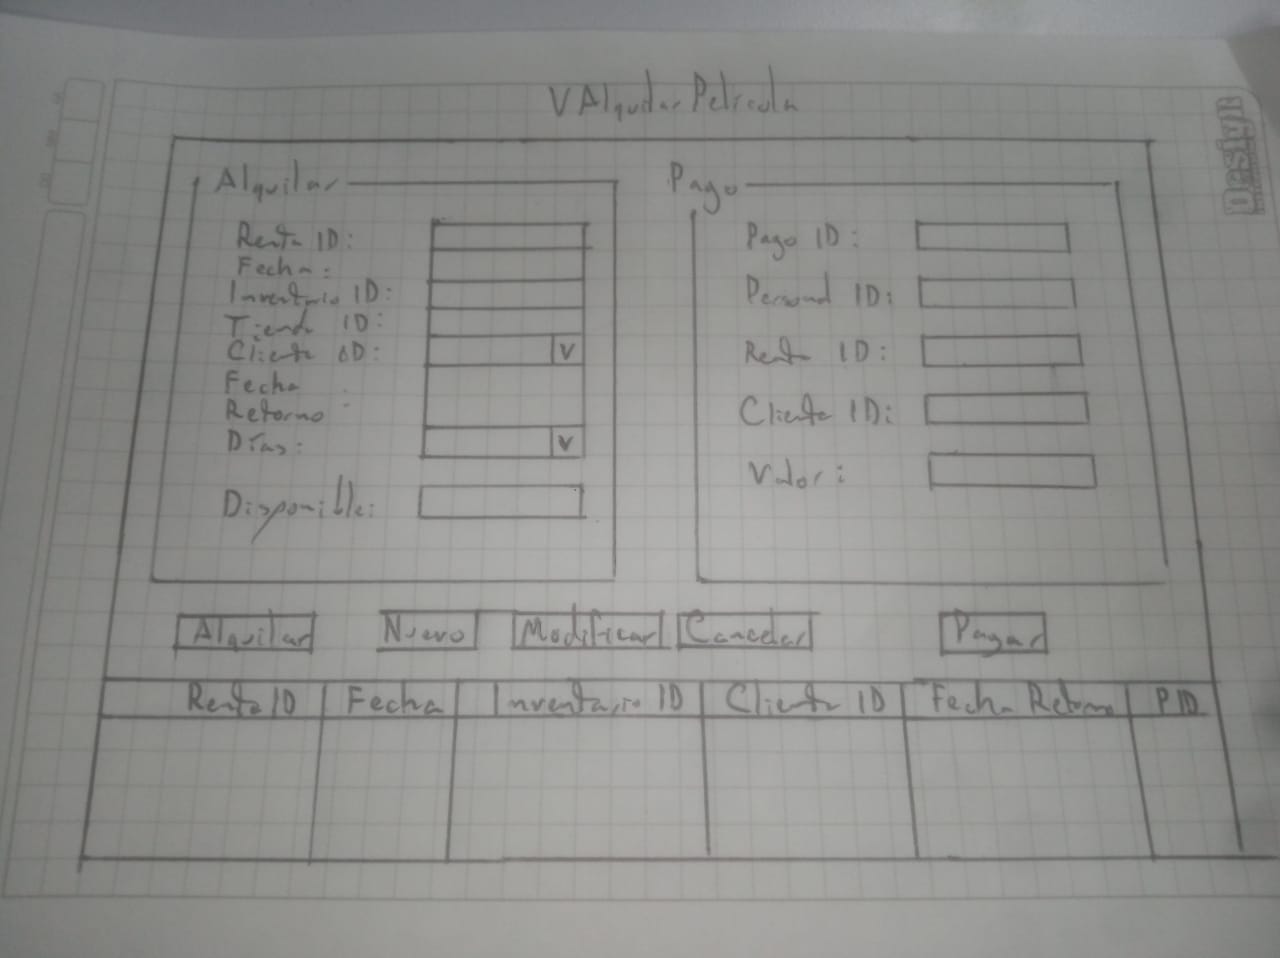 VAlquilarPelicula
Alquilar
Renta ID:
Fecha:
Inventario ID:
Tienda ID:
Cliente ID:
V
Fecha
Retorno
Días:
V
Disponible:
Pago
Pago ID:
Personal ID:
Renta ID:
Cliente ID:
Valor:
Alquilar Nuevo Modificar Cancelar Pagar
Renta ID Fecha Inventario ID Cliente ID Fecha Retorno PID